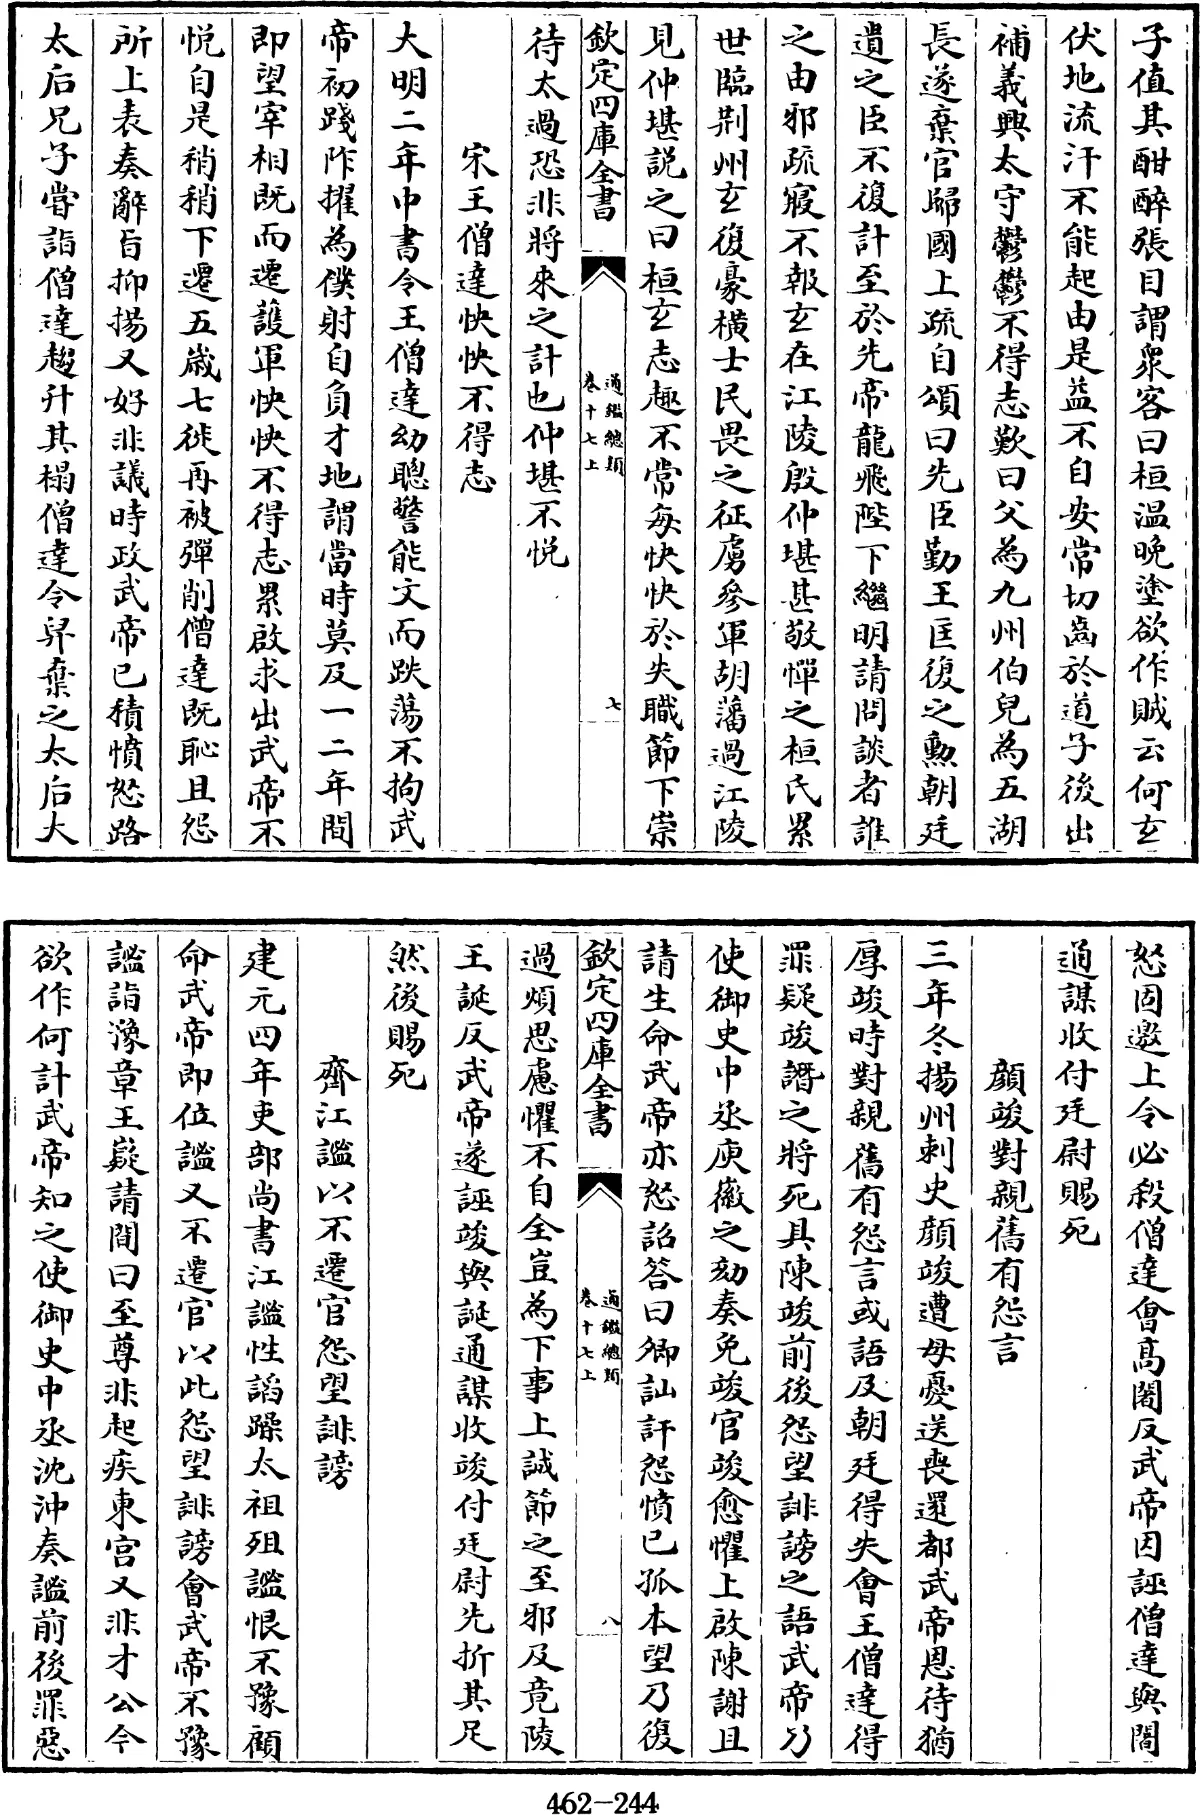 子值其酣醉張目謂衆客曰桓温晚塗欲作賊云何玄
伏地流汗不能起由是益不自安常切齒於道子後出
補義興太守鬱鬱不得志歎曰父為九州伯兒為五湖
長遂棄官歸國上疏自頌曰先臣勤王匡復之勲朝廷
遺之臣不復計至於先帝龍飛陛下繼明請問談者誰
之由邪疏寢不報玄在江陵殷仲堪甚敬憚之桓氏累
世臨荆州玄復豪橫士民畏之征虜參軍胡藩過江陵
見仲堪説之曰桓玄志趣不常每怏怏於失職節下崇
欽定四庫全書
通鑑總類
卷十七上
七
待太過恐非將來之計也仲堪不悦
宋王僧達怏怏不得志
大明二年中書令王僧達幼聰警能文而跌蕩不拘武
帝初踐阼擢為僕射自負才地謂當時莫及一二年間
即望宰相既而遷護軍怏怏不得志累啟求出武帝不
悦自是稍稍下遷五歲七徙再被彈削僧達既恥且怨
所上表奏辭旨抑揚又好非議時政武帝已積憤怒路
太后兄子嘗詣僧達趨升其榻僧達令舁棄之太后大
怒固邀上令必殺僧達會高闍反武帝因誣僧達與闍
通謀收付廷尉賜死
顔竣對親舊有怨言
三年冬揚州刺史顔竣遭母憂送喪還都武帝恩待猶
厚竣時對親舊有怨言或語及朝廷得失會王僧達得
罪疑竣譖之將死具陳竣前後怨望誹謗之語武帝乃
使御史中丞庾徽之劾奏免竣官竣愈懼上啟陳謝且
請生命武帝亦怒詔答曰卿訕訐怨憤已孤本望乃復
欽定四庫全書
通鑑總類
卷十七上
八
過煩思慮懼不自全豈為下事上誠節之至邪及竟陵
王誕反武帝遂誣竣與誕通謀收竣付廷尉先折其足
然後賜死
齊江謐以不遷官怨望誹謗
建元四年吏部尚書江謐性諂躁太祖殂謐恨不豫顧
命武帝即位謐又不遷官以此怨望誹謗會武帝不豫
謐詣豫章王嶷請間曰至尊非起疾東宮又非才公今
欲作何計武帝知之使御史中丞沈沖奏謐前後罪惡
462-244